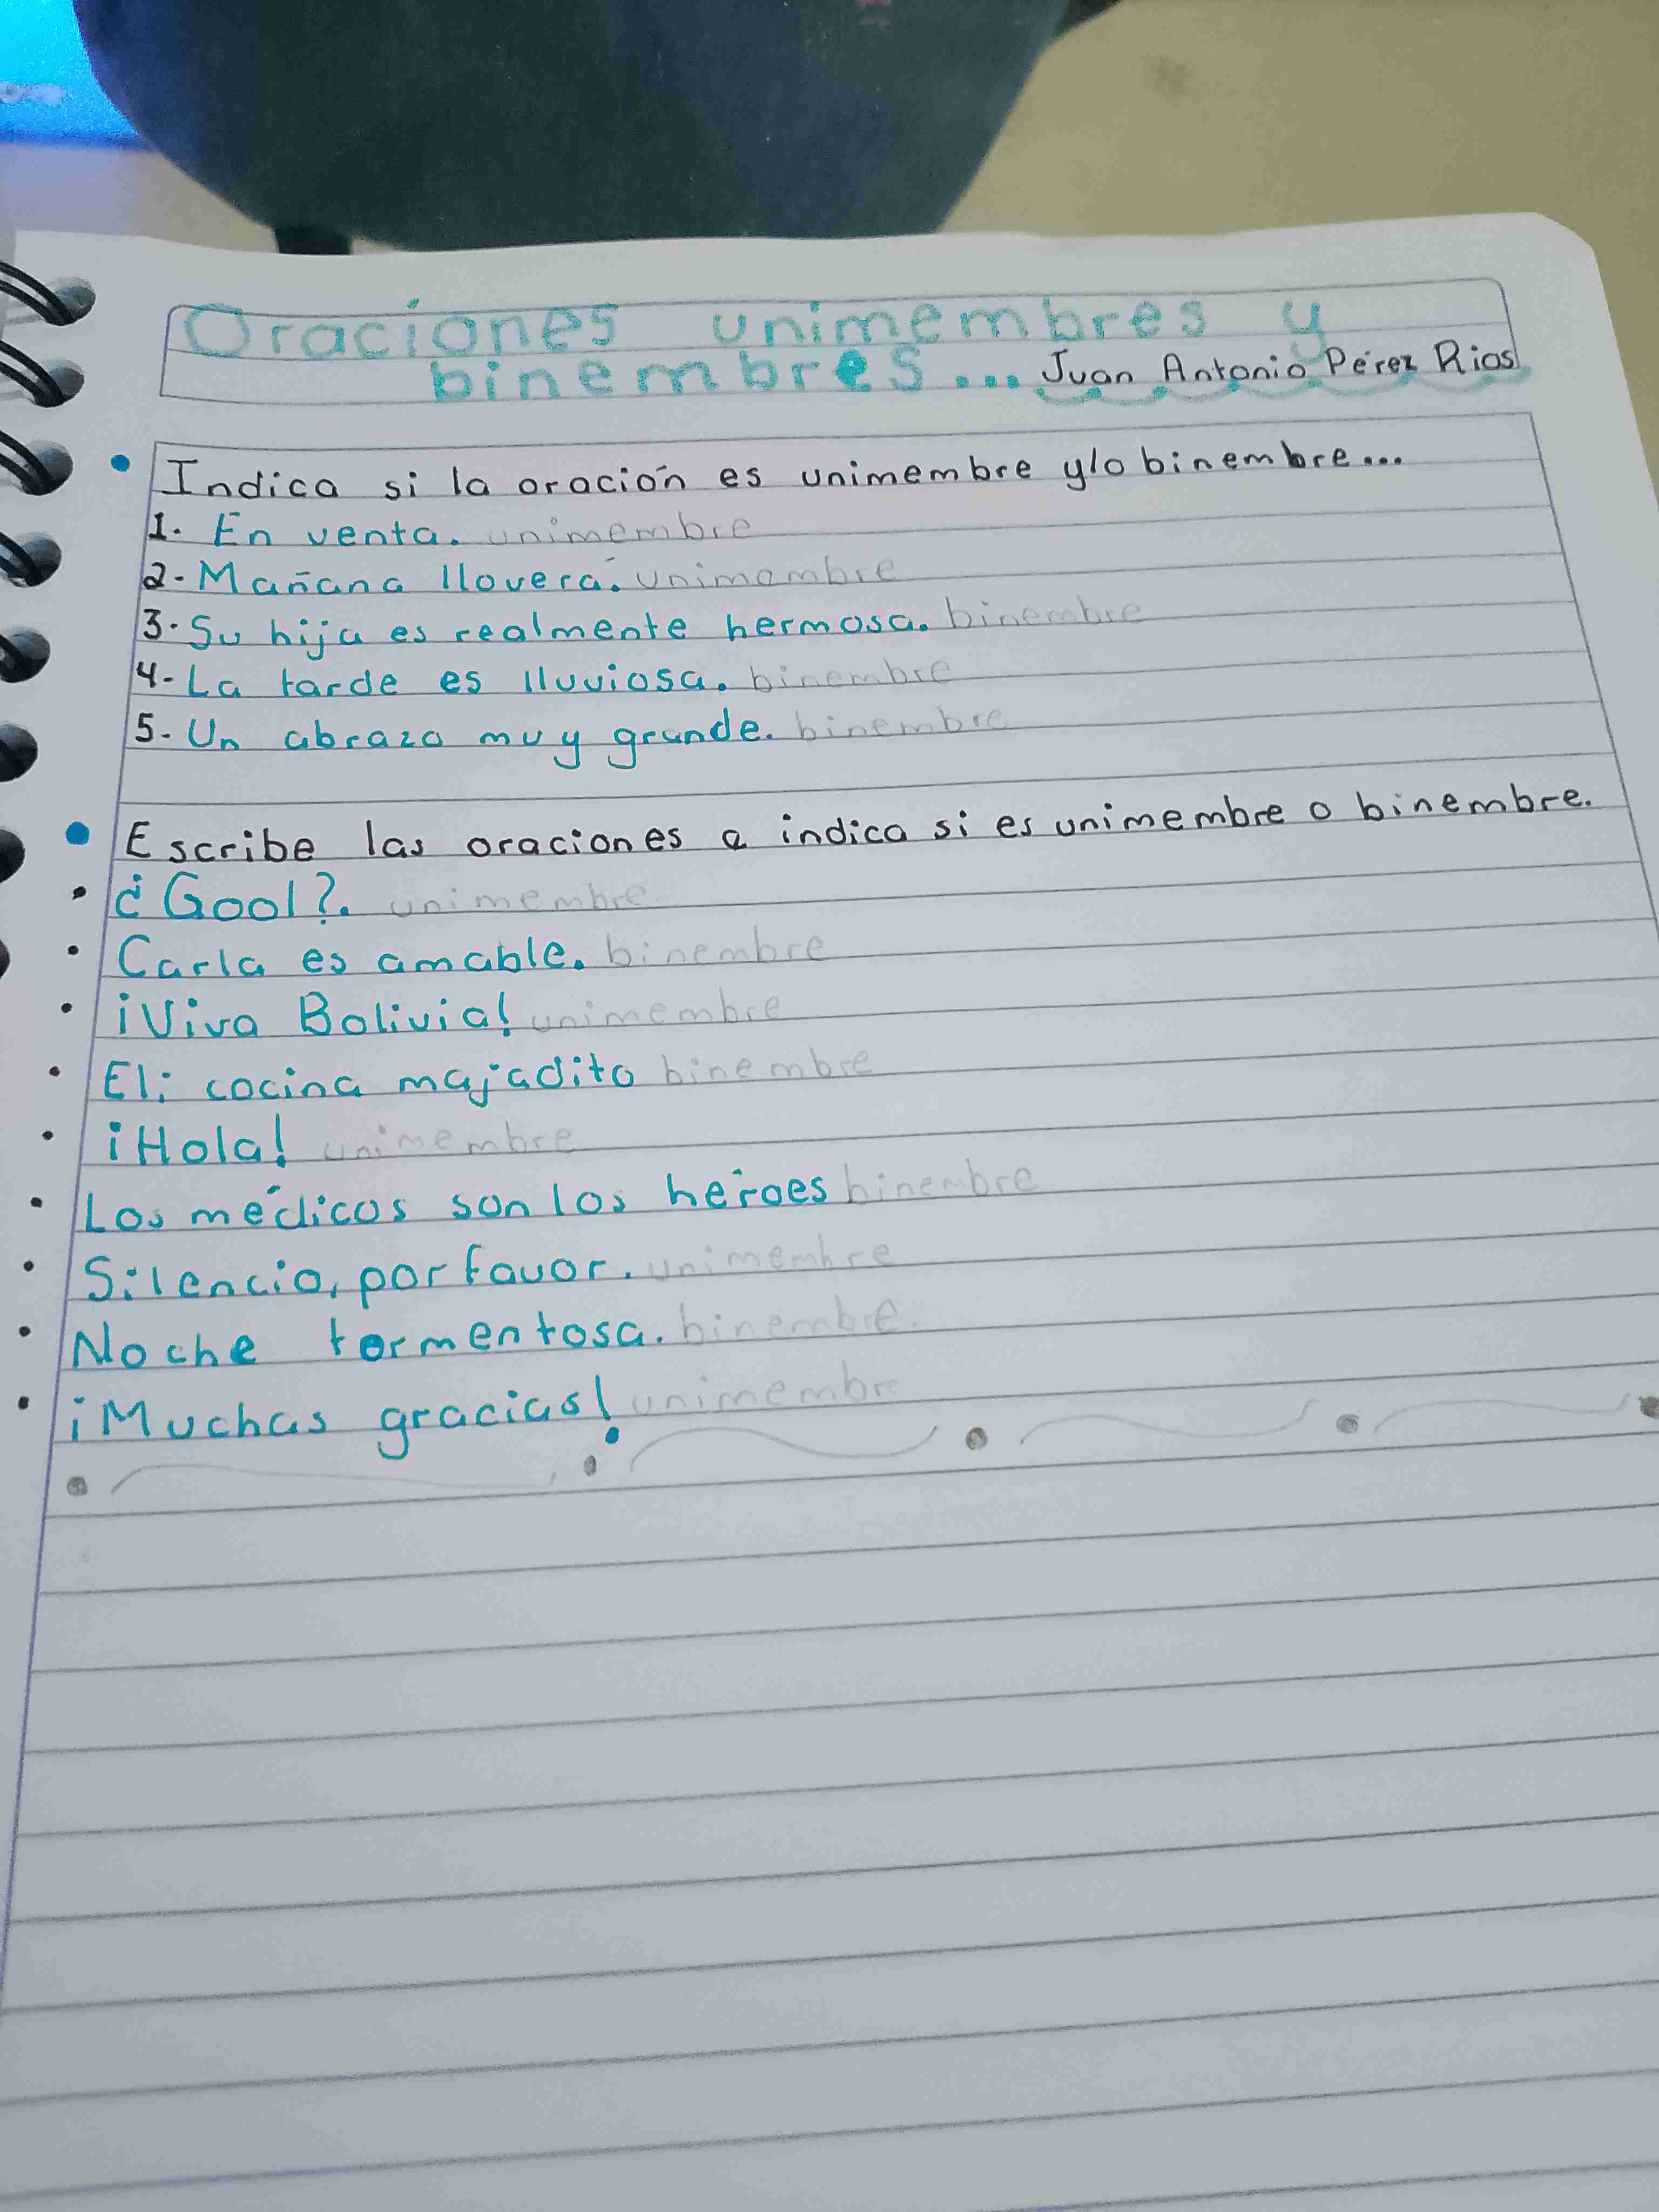 Oraciones unimembres y
binembres... Juan Antonio Pérez Rios
Indica si la oración es unimembre y/o binembre...
1. En venta. unimembre
2- Mañana lloverá. unimembre
3. Su hija es realmente hermosa. binembre
4- La tarde es lluviosa. binembre
5. Un abrazo muy grande. binembre
Escribe las oraciones e indica si es unimembre o binembre.
• ¿Gool?. unimembre
• Carla es amable. binembre
• ¡Viva Bolivia! unimembre
• Eli cocina majadito binembre
• ¡Hola! unimembre
• Los médicos son los héroes binembre
• Silencio, por favor. unimembre
• Noche tormentosa. binembre.
• ¡Muchas gracias! unimembre